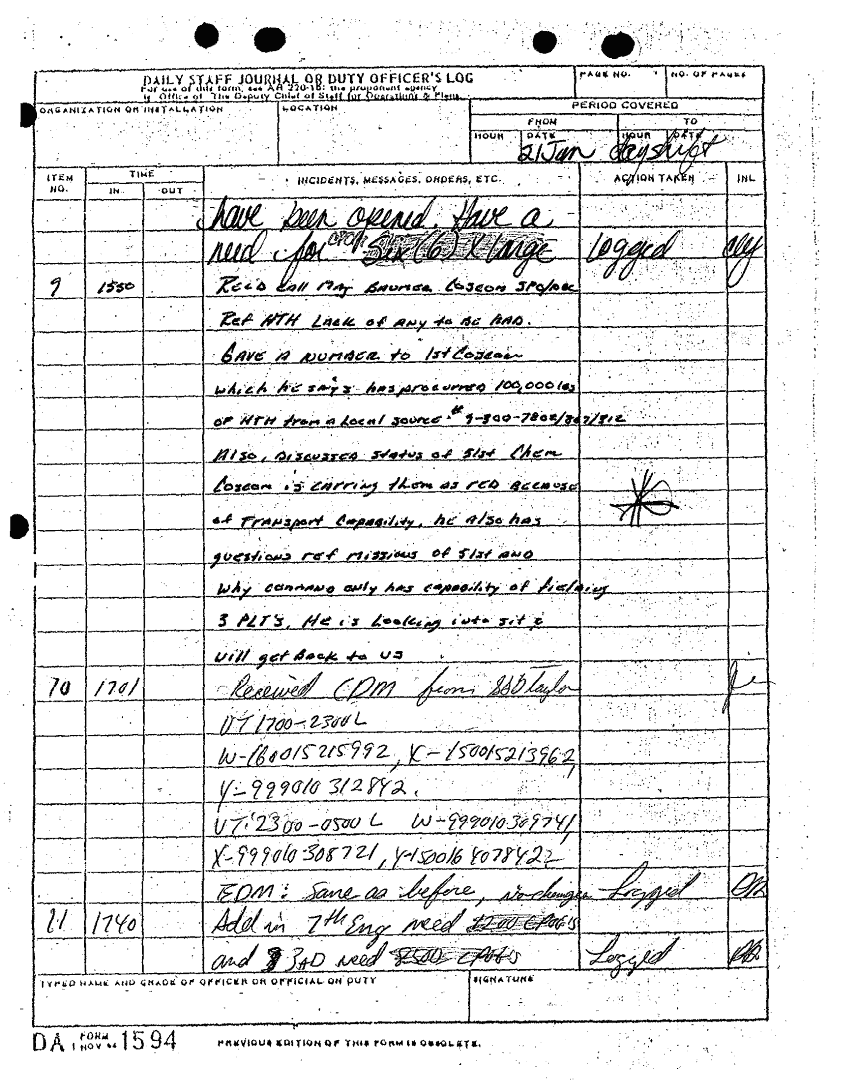 DAILY STAFF JOURNAL OR DUTY OFFICER'S LOG
For use of this form, see AR 220-15; the proponent agency
is Office of The Deputy Chief of Staff for Operations & Plans.
PAGE NO.
NO. OF PAGES
ORGANIZATION OR INSTALLATION
LOCATION
PERIOD COVERED
FROM
TO
HOUR
DATE
HOUR
DATE
21 Jan dayshift
ITEM NO.
TIME
IN
OUT
INCIDENTS, MESSAGES, ORDERS, ETC.
ACTION TAKEN
INL
have been opened. Have a
need for Six (6) X large Logged
9 1550 Rec'd call Maj Baumer Coscom
Ref HTH Lack of any to be had.
Gave a number to 1st Coscom
which he says has procurred 100,000 lbs
of HTH from a Local source.
Also, Discussed status of 51st Chem
Coscom is carring them as red because
of Transport Capability, he Also has
questions ref missions of 51st and
why command only has capability of fielding
3 PLT's, He is Looking into sit &
will get back to us
10 1701 Received CDM from SSG Taylor
VT 1700-2300L
W-160015215992, X-150015213962,
Y-999010312842.
VT: 2300-0500L W-999010309741,
X-999010308721, Y-150016407842
EDM: Same as before, no changes Logged
11 1740 Add in 7th Eng need
and 3AD need Logged
TYPED NAME AND GRADE OF OFFICER OR OFFICIAL ON DUTY
SIGNATURE
DA FORM 1 NOV 1594
PREVIOUS EDITION OF THIS FORM IS OBSOLETE.